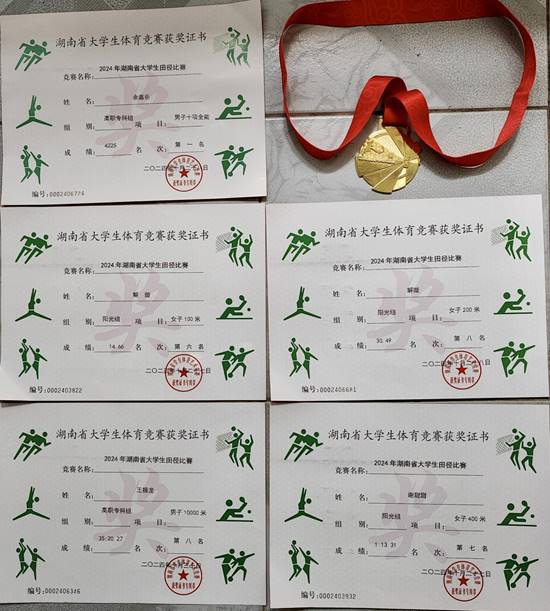 湖南省大学生体育竞赛获奖证书
竞赛名称: 2024年湖南省大学生田径比赛
姓 名: 余嘉乐
组 别: 高职专科组 项 目: 男子十项全能
成 绩: 4225 名 次: 第一名
编号:0002406774
湖南省大学生体育竞赛获奖证书
竞赛名称: 2024年湖南省大学生田径比赛
姓 名: 解薇
组 别: 阳光组 项 目: 女子100米
成 绩: 14.66 名 次: 第六名
编号:0002403822
湖南省大学生体育竞赛获奖证书
竞赛名称: 2024年湖南省大学生田径比赛
姓 名: 解薇
组 别: 阳光组 项 目: 女子200米
成 绩: 33.49 名 次: 第八名
编号:0002406681
湖南省大学生体育竞赛获奖证书
竞赛名称: 2024年湖南省大学生田径比赛
姓 名: 王 龙
组 别: 高职专科组 项 目: 男子10000米
成 绩: 35:20.27 名 次: 第八名
编号:0002406346
湖南省大学生体育竞赛获奖证书
竞赛名称: 2024年湖南省大学生田径比赛
姓 名: 谢甜甜
组 别: 阳光组 项 目: 女子400米
成 绩: 1:13.31 名 次: 第七名
编号:0002403932